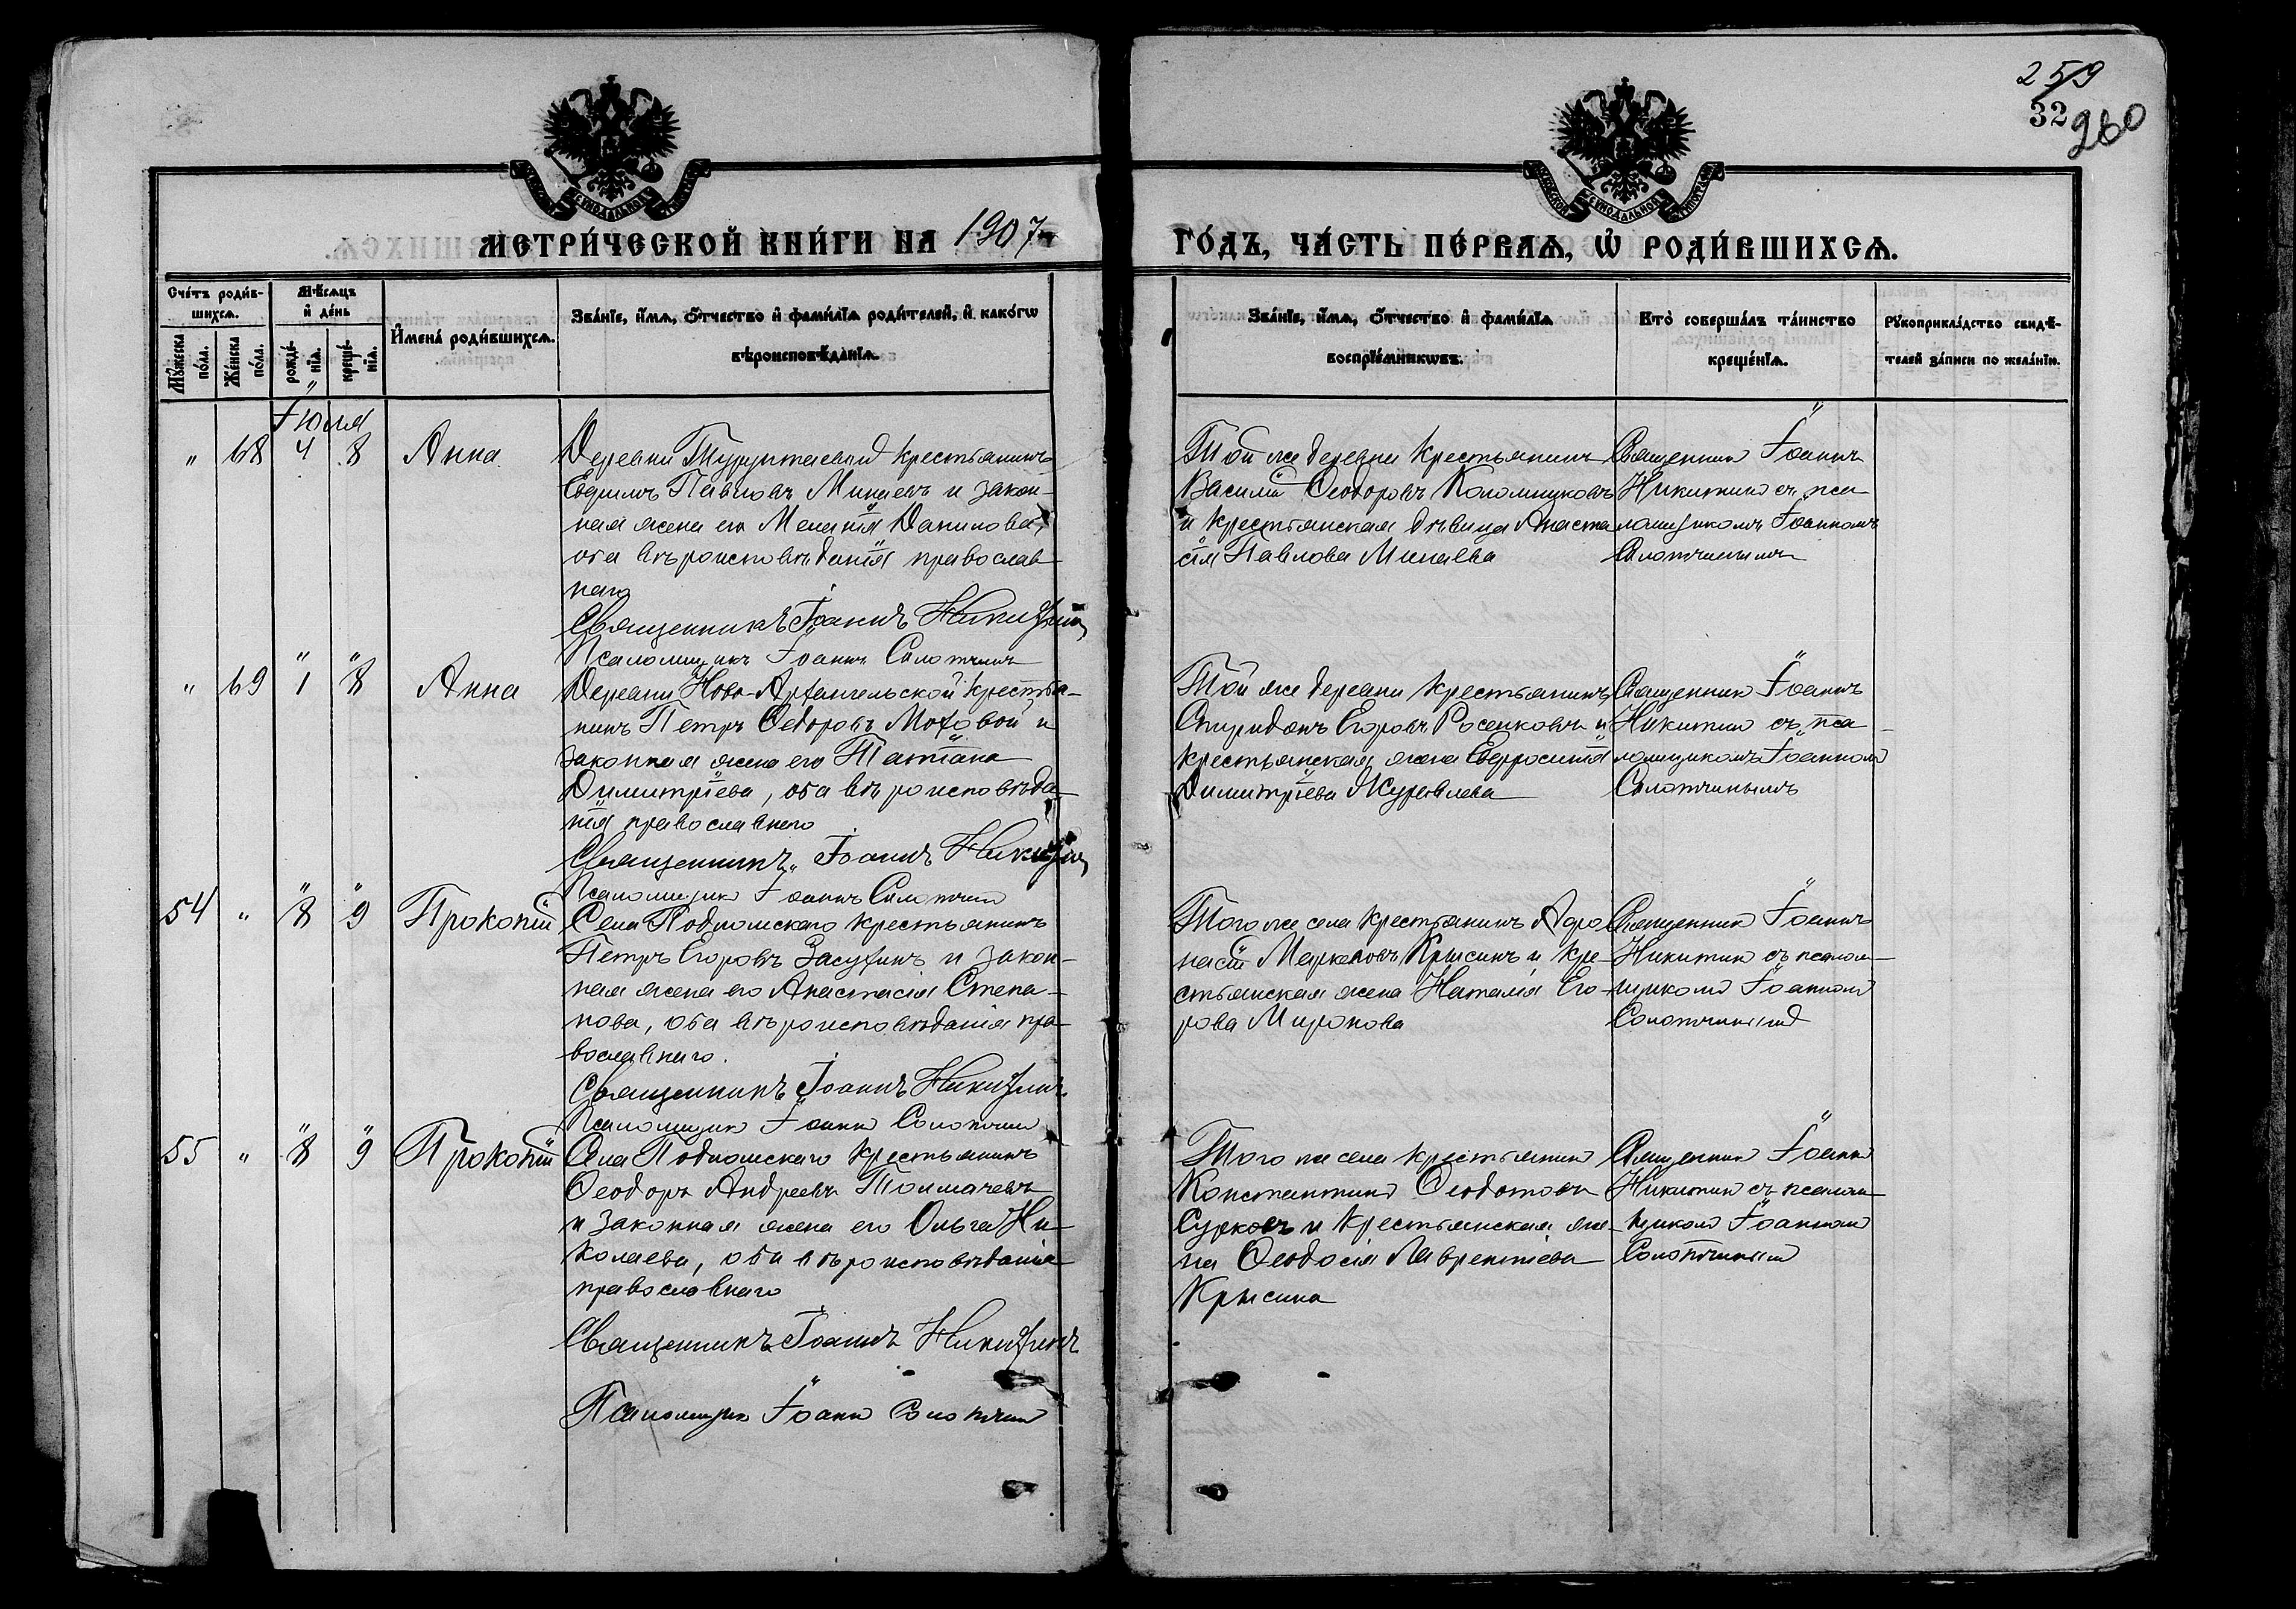 259
32
260
МЕТРИ́ЧЕСКОЙ КНИ́ГИ НА 1907
ГО́ДЪ, ЧА́СТЬ ПЕ́РВАѦ, Ѡ҆ РОДИ́ВШИХСѦ.
Сче́тъ роди́в-
шихсѧ.
Мѣ́сѧцъ
и҆ де́нь
Мꙋ́жеска по́ла.
Же́нска по́ла.
рожде́-
нїѧ.
креще́-
нїѧ.
И҆мена̀ роди́вшихсѧ.
Зва́нїе, и҆́мѧ, ѻ҆́тчество и҆ фами́лїѧ роди́телей, и҆ како́гѡ
вѣроисповѣ́данїѧ.
Зва́нїе, и҆́мѧ, ѻ҆́тчество и҆ фами́лїѧ
воспрїе́мникѡвъ.
Кто̀ соверша́лъ та́инство
креще́нїѧ.
Рꙋкоприкла́дство свидѣ́-
телей за́писи по жела́нїю.
Іюля
" 68 4 8 Анна
Деревни крестьянинъ
Павловъ Минаевъ и закон-
ная жена его Мелания Данилова
оба вѣроисповѣданія православ
наго
Священникъ Іоаннъ Никитинъ
Псаломщикъ Іоаннъ Солотчинъ
Той же деревни крестьянинъ
Василій Ѳеодоровъ Коломнуковъ
и крестьянская дѣвица Анаста
сія Павлова Минаева
Священникъ Іоаннъ
Никитинъ съ пса
ломщикомъ Іоанномъ
Солотчинымъ
" 69 1 8 Анна
Деревни Ново-Архангельской крестья-
нинъ Петръ Ѳеодоровъ Моховой и
законная жена его Татіана
Димитріева, оба вѣроисповѣда-
нія православнаго
Священникъ Іоаннъ Никитинъ
Псаломщикъ Іоаннъ Солотчинъ
Той же деревни крестьянинъ
Спиридонъ Егоровъ и
крестьянская жена Евфросинія
Димитріева Журавлева
Священникъ Іоаннъ
Никитинъ съ пса-
ломщикомъ Іоанномъ
Солотчинымъ
54 " 8 9 Прокопій
Села Подломскаго крестьянинъ
Петръ Егоровъ Засухинъ и закон-
ная жена его Анастасія Степа-
нова, оба вѣроисповѣданія пра-
вославнаго.
Священникъ Іоаннъ Никитинъ
Псаломщикъ Іоаннъ Солотчинъ
Того же села крестьянинъ Афо
насій Марковъ Крысинъ и кре-
стьянская жена Наталія Его-
рова Миронова
Священникъ Іоаннъ
Никитинъ съ псалом-
щикомъ Іоанномъ
Солотчинымъ
55 " 8 9 Прокопій
Села Подломскаго крестьянинъ
Ѳеодоръ Андреевъ Толмачевъ
и законная жена его Ольга Ни-
колаева, оба вѣроисповѣданія
православнаго
Священникъ Іоаннъ Никитинъ
Псаломщикъ Іоаннъ Солотчинъ
Того же села крестьянинъ
Константинъ Ѳеодотовъ
Сурковъ и крестьянская же-
на Ѳеодосія Лаврентіева
Крысина
Священникъ Іоаннъ
Никитинъ съ псалом-
щикомъ Іоанномъ
Солотчинымъ